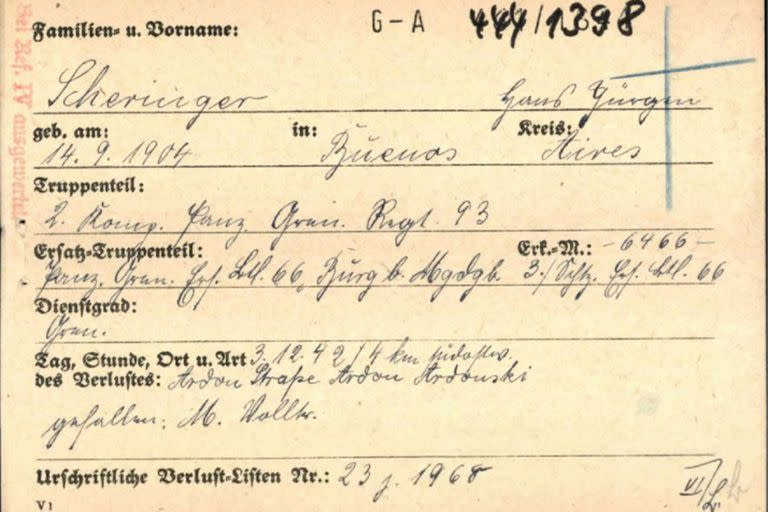 G-A 444/1398
Familien- u. Vorname:
Scheringer Hans Jürgen
geb. am: in: Kreis:
14. 9. 1904 Buenos Aires
Truppenteil:
2. Komp. Panz. Gren. Regt. 93
Ersatz-Truppenteil: Erk.-M.: -6466-
Panz. Gren. Ers. Btl. 66, Burg b. Mgdgb. 3./Schtz. Ers. Btl. 66
Dienstgrad:
Gren.
Tag, Stunde, Ort u. Art 3. 12. 42 / 4 km südostw.
des Verlustes: Ardon Straße Ardon Ardonski
gefallen: M. Volltr.
Urschriftliche Verlust-Listen Nr.: 23 j. 1968
V1 VI/
Bei Ref. IV ausgewertet